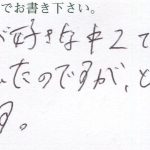 でお書き下さい。
が好きな中2で
したのですが、と
す。